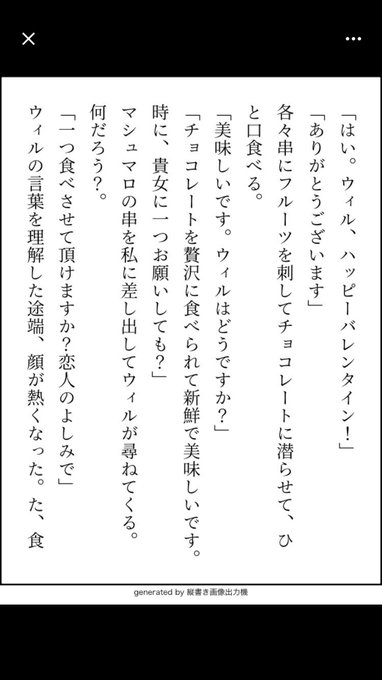 「はい。ウィル、ハッピーバレンタイン！」
「ありがとうございます」
各々串にフルーツを刺してチョコレートに潜らせて、ひ
と口食べる。
「美味しいです。ウィルはどうですか？」
「チョコレートを贅沢に食べられて新鮮で美味しいです。
時に、貴女に一つお願いしても？」
マシュマロの串を私に差し出してウィルが尋ねてくる。
何だろう？。
「一つ食べさせて頂けますか？恋人のよしみで」
ウィルの言葉を理解した途端、顔が熱くなった。た、食
generated by 縦書き画像出力機